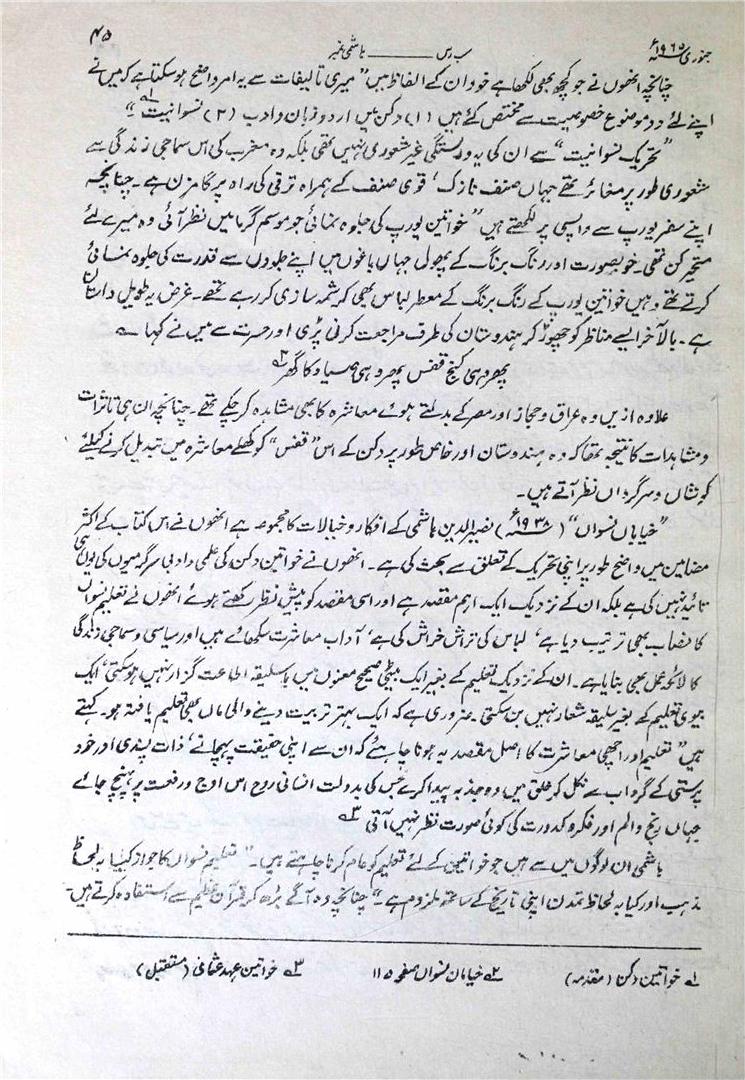 جنوری ۱۹۶۵ء سب رس ــــــ ہاشمی نمبر ۴۵
چنانچہ انھوں نے جو کچھ بھی لکھا ہے خود ان کے الفاظ میں "میری تالیفات سے یہ امر واضح ہو سکتا ہے کہ میں نے
اپنے لئے دو موضوع خصوصیت سے مختص کئے ہیں (۱) دکن میں اردو زبان و ادب (۲) نسوانیت ۱؎"
"تحریک نسوانیت" سے ان کی یہ وابستگی غیر شعوری نہیں تھی بلکہ وہ مغرب کی اس سماجی زندگی سے
شعوری طور پر متاثر تھے جہاں صنف نازک، قوی صنف کے ہمراہ ترقی کی راہ پر گامزن ہے۔ چنانچہ
اپنے سفر یورپ سے واپسی پر لکھتے ہیں "خواتین یورپ کی جلوہ نمائی جو موسم گرما میں نظر آئی وہ میرے لئے
متحیر کن تھی۔ خوبصورت اور رنگ برنگ کے پھول جہاں باغوں میں اپنے جلووں سے قدرت کی جلوہ نمائی
کرتے تھے وہیں خواتین یورپ کے رنگ برنگ کے معطر لباس بھی کرشمہ سازی کر رہے تھے۔ غرض یہ طویل داستان
ہے۔ بالآخر ایسے مناظر کو چھوڑ کر ہندوستان کی طرف مراجعت کرنی پڑی اور حسرت سے میں نے کہا ؎
پھر وہی کنج قفس پھر وہی صیاد کا گھر ۲؎
علاوہ ازیں وہ عراق و حجاز اور مصر کے بدلتے ہوئے معاشرہ کا بھی مشاہدہ کر چکے تھے۔ چنانچہ ان ہی تاثرات
و مشاہدات کا نتیجہ تھا کہ وہ ہندوستان اور خاص طور پر دکن کے اس "قفس" کو کھلے معاشرہ میں تبدیل کرنے کیلئے
کوشاں و سرگرداں نظر آتے ہیں۔
"خیابان نسواں" (۱۹۳۸ء) نصیر الدین ہاشمی کے افکار و خیالات کا مجموعہ ہے انھوں نے اس کتاب کے اکثر
مضامین میں واضح طور پر اپنی تحریک کے تعلق سے بحث کی ہے۔ انھوں نے خواتین دکن کی علمی و ادبی سرگرمیوں کی یوں ہی
تائید نہیں کی ہے بلکہ ان کے نزدیک ایک اہم مقصد ہے اور اسی مقصد کو پیش نظر رکھتے ہوئے انھوں نے تعلیم نسواں
کا نصاب بھی ترتیب دیا ہے، لباس کی تراش خراش کی ہے، آداب معاشرت سکھائے ہیں اور سیاسی و سماجی زندگی
کا لائحہ عمل بھی بتایا ہے۔ ان کے نزدیک تعلیم کے بغیر ایک بیٹی صحیح معنوں میں با سلیقہ اطاعت گزار نہیں ہو سکتی، ایک
بیوی تعلیم کے بغیر سلیقہ شعار نہیں بن سکتی۔ ضروری ہے کہ ایک بہتر تربیت دینے والی ماں بھی تعلیم یافتہ ہو۔ کہتے
ہیں "تعلیم اور اچھی معاشرت کا اصل مقصد یہ ہونا چاہئے کہ ان سے اپنی حقیقت پہچانے، ذات پسندی اور خود
پرستی کے گرداب سے نکل کر خلق میں وہ جذبہ پیدا کرے جس کی بدولت انسانی روح اس اوج و رفعت پر پہنچ جائے
جہاں رنج و الم اور فکر و کدورت کی کوئی صورت نظر نہیں آتی ۳؎
ہاشمی ان لوگوں میں سے ہیں جو خواتین کے لئے تعلیم کو عام کرنا چاہتے ہیں۔ "تعلیم نسواں کا جواز کیا بہ لحاظ
مذہب اور کیا بہ لحاظ تمدن اپنی تاریخ کے ساتھ ملزوم ہے۔" چنانچہ وہ آگے بڑھ کر قرآن عظیم سے استفادہ کرتے ہیں۔
۱؎ خواتین دکن (مقدمہ) ۲؎ خیابان نسواں صفحہ ۱۱۵ ۳؎ خواتین عہد عثمانی (مستقبل)